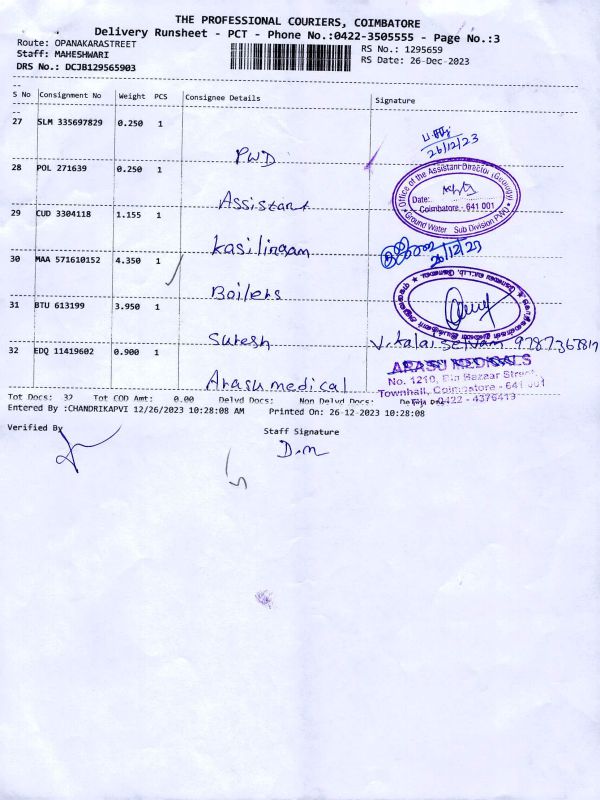 THE PROFESSIONAL COURIERS, COIMBATORE
Delivery Runsheet - PCT - Phone No.:0422-3505555 - Page No.:3
Route: OPANAKARASTREET
RS No.: 1295659
Staff: MAHESHWARI
RS Date: 26-Dec-2023
DRS No.: DCJB129565903
S No Consignment No Weight PCS Consignee Details Signature
27 SLM 335697829 0.250 1
26/12/23
PWD
28 POL 271639 0.250 1
Office of the Assistant Director (Geology)
Date:
Coimbatore - 641 001
Ground Water Sub Division PWD
Assistant
29 CUD 3304118 1.155 1
Kasilingam
26/12/23
30 MAA 571610152 4.350 1
Boilers
31 BTU 613199 3.950 1
Suresh
V. Kalai Selvan 9787367817
32 EDQ 11419602 0.900 1
Arasu medical
ARASU MEDICALS
No. 1210, Big Bazaar Street,
Townhall, Coimbatore - 641 001
0422 - 4376413
Tot Docs: 32 Tot COD Amt: 0.00 Delvd Docs: Non Delvd Docs:
Entered By :CHANDRIKAPVI 12/26/2023 10:28:08 AM Printed On: 26-12-2023 10:28:08
Verified By
Staff Signature
D.m